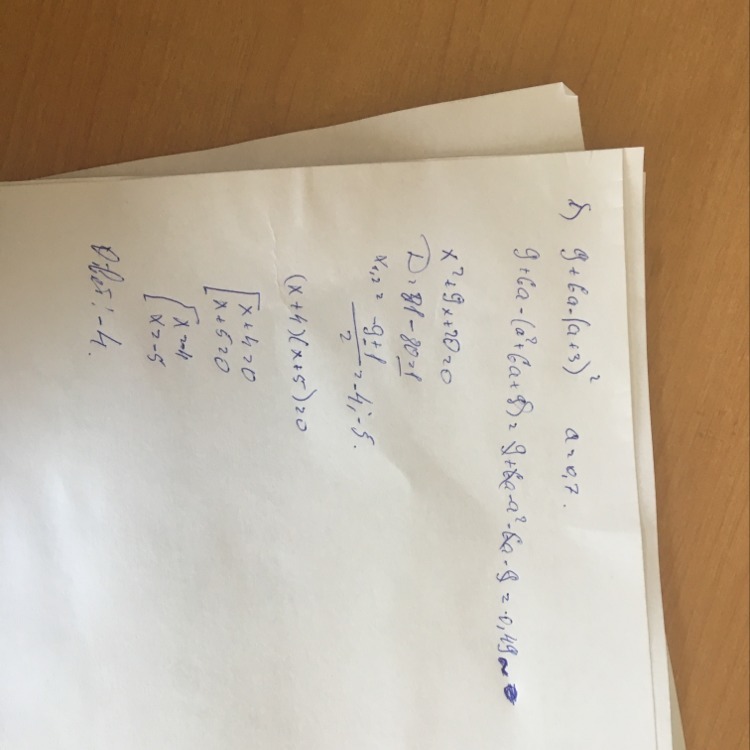 б) 9 + 6a - (a+3)² a = 0,7.
9 + 6a - (a² + 6a + 9) = 9 + 6a - a² - 6a - 9 = -0,49
x² + 9x + 20 = 0
D = 81 - 80 = 1
x₁,₂ = (-9 ± 1)/2 = -4; -5.
(x+4)(x+5) = 0
[x+4=0
x+5=0
[x=-4
x=-5
Ответ: -4.